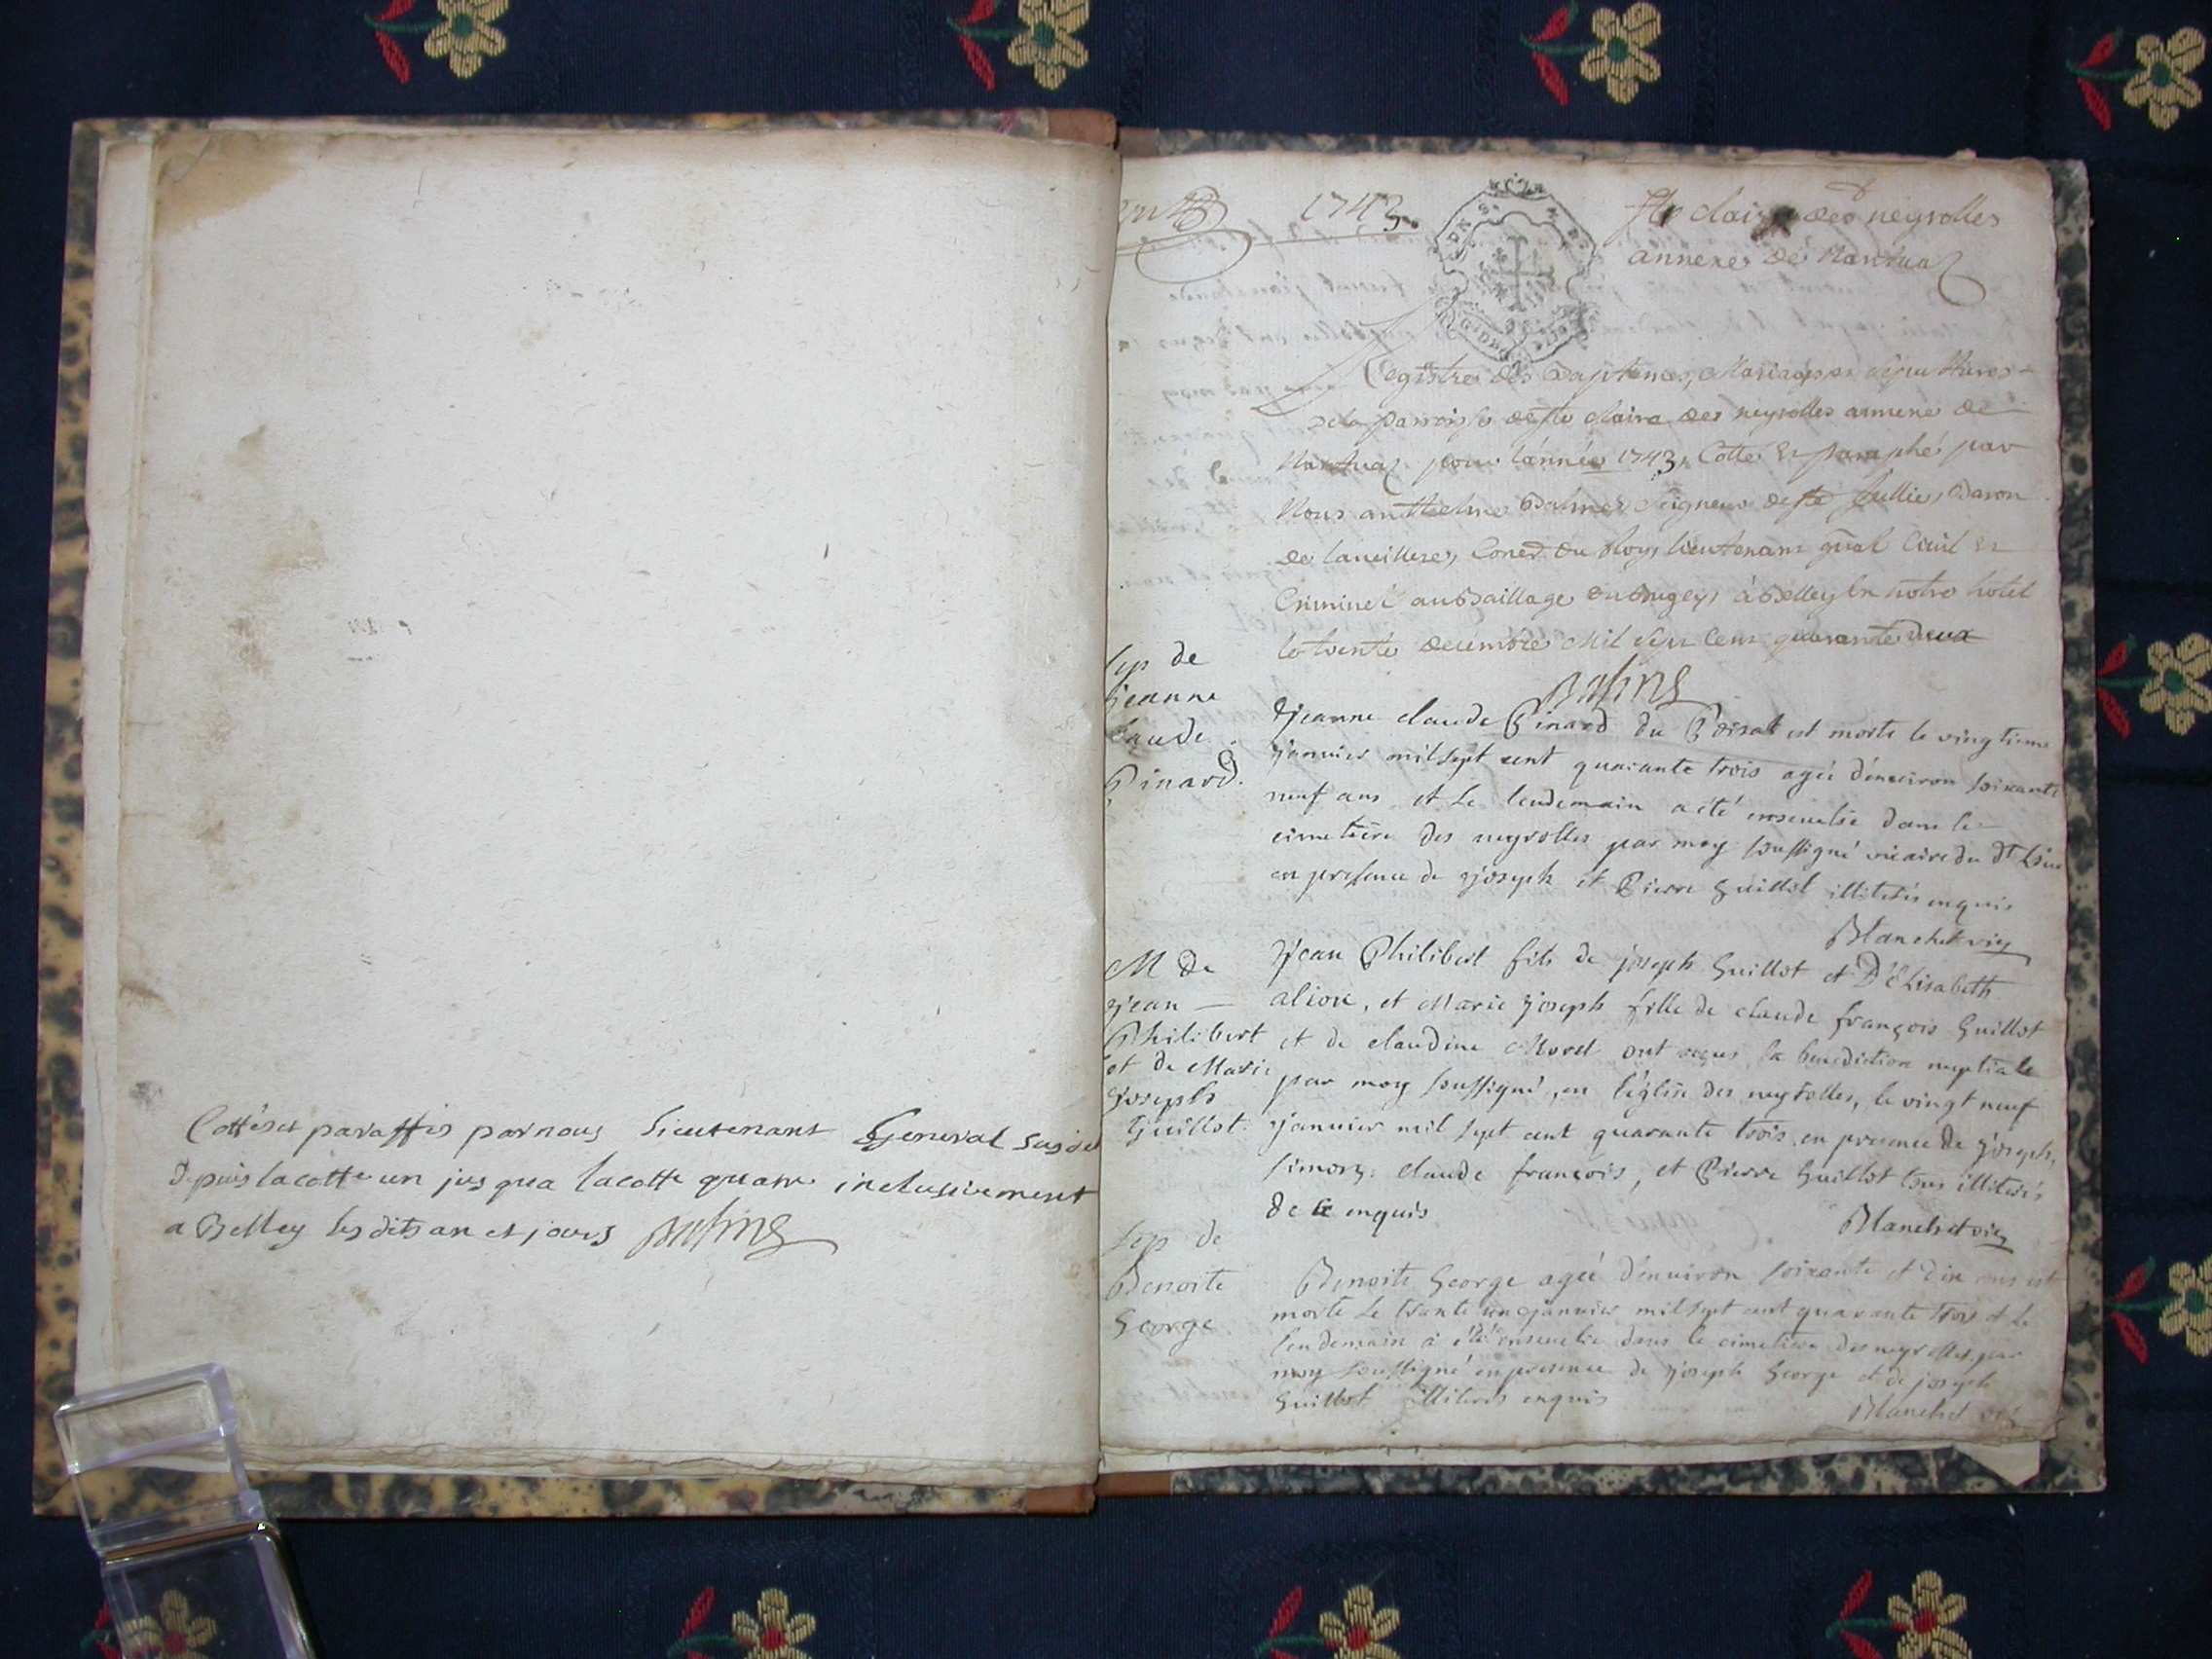 Cottéset paraffés par nous Lieutenant General susdit
depuis la cotte un jusqua la cotte quatre inclusivement
a Belley les dits an et jours Balme
1743.
Ste claire des neyrolles
annexe de Nantua
Registre des Baptemes, Mariages et sepultures
de la parroisse de Ste claire des neyrolles annexe de
Nantua pour l'année 1743, Cotté et paraphé par
Nous anthelme Balme Seigneur de Ste Jullie, Baron
de Conser du Roy, lieutenant gñal Civil et
Criminel au Baillage du Bugey, à Belley en notre hotel
le trente decembre Mil sept cent quarante deux
Balme
sep de
jeanne
claude
Pinard.
Jeanne claude Pinard du Poisat est morte le vingtieme
janvier mil sept cent quarante trois agée d'environ soixante
neuf ans et le lendemain a été ensevelie dans le
cimetiere des neyrolles par moy soussigné vicaire du dt Lieu
en presence de joseph et Pierre Guillot illiterés enquis
Blanchet vic
M de
jean
Philibert
et de Marie
joseph
Guillot.
Jean Philibert fils de joseph Guillot et D'Elisabeth
aliou, et Marie joseph fille de claude françois Guillot
et de claudine Morel ont reçus la benediction nuptiale
par moy soussigné, en l'église des neyrolles, le vingt neuf
janvier mil sept cent quarante trois en presence de joseph,
simon, claude françois, et Pierre Guillot tous illiterés
de ce enquis
Blanchet vic
sep de
Benoite
George
Benoite George agée d'environ soixante et dix ans est
morte le trente une janvier mil sept cent quarante trois et le
lendemain à été ensevelie dans le cimetiere des neyrolles par
moy soussigné en presence de joseph George et de joseph
Guillot illiterés enquis
Blanchet vic